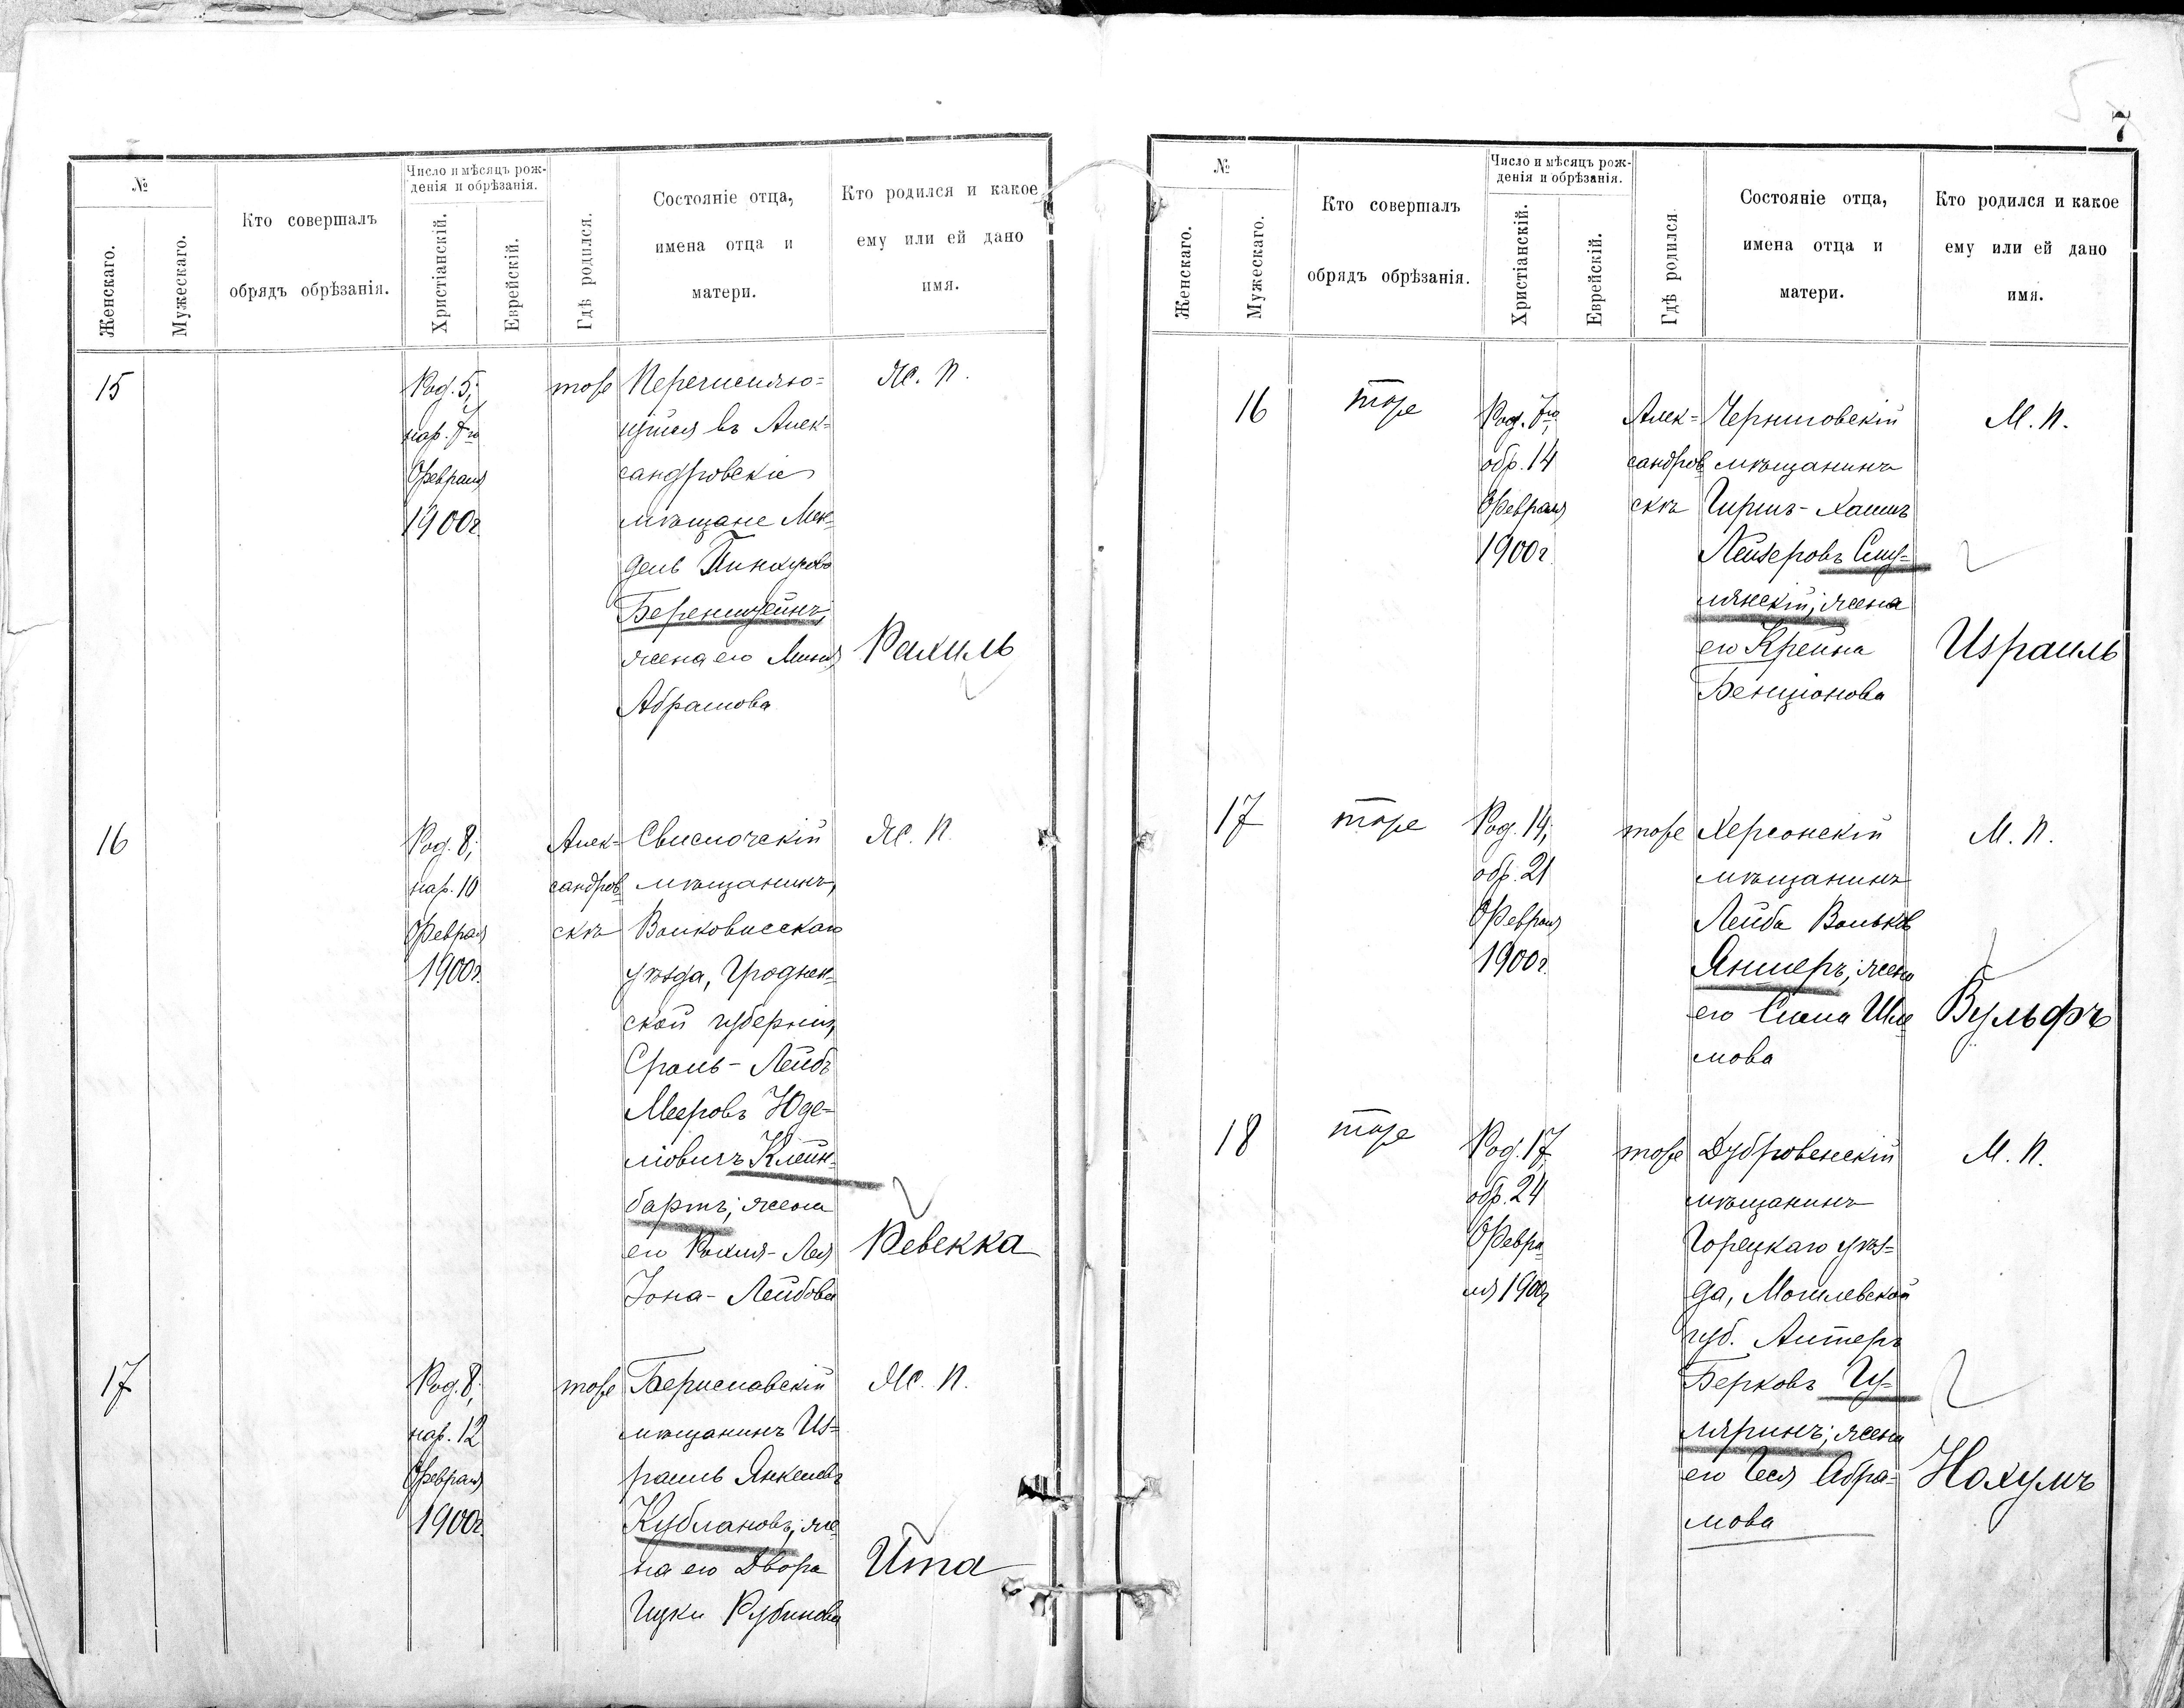 №
Женскаго.
Мужескаго.
Кто совершалъ
обрядъ обрѣзанія.
Число и мѣсяцъ рож-
денія и обрѣзанія.
Христіанскій.
Еврейскій.
Гдѣ родился.
Состояніе отца,
имена отца и
матери.
Кто родился и какое
ему или ей дано
имя.
15
Род. 5;
нар. 7го
Февраля
1900г.
тоже
Перечисляю=
щійся въ Алек=
сандровскіе
мѣщане Мен=
дель Пинхусовъ
Беренштейнъ;
жена его
Абрамова
Ж. п.
Рахиль
16
Род. 8;
нар. 10
Февраля
1900г.
Алек=
сандров
скъ
Свислочскій
мѣщанинъ,
Волковысскаго
уѣзда, Гроднен=
ской губерніи,
Сроль-Лейбъ
Мееровъ Юде=
ловичъ Клейн=
бартъ; жена
его Рохля-Лея
Іона-Лейбова
Ж. п.
Ревекка
17
Род. 8;
нар. 12
Февраля
1900г.
тоже
Бериславскій
мѣщанинъ Из=
раиль Янкелевъ
Кублановъ; же
на его Двора
Ицки Рубинова
Ж. п.
Ита
5
7
№
Женскаго.
Мужескаго.
Кто совершалъ
обрядъ обрѣзанія.
Число и мѣсяцъ рож-
денія и обрѣзанія.
Христіанскій.
Еврейскій.
Гдѣ родился
Состояніе отца,
имена отца и
матери.
Кто родился и какое
ему или ей дано
имя.
16
тоже
Род. 7го;
обр. 14
Февраля
1900г.
Алек=
сандров
скъ
Черниговскій
мѣщанинъ
Гиршъ-Хаимъ
Лейзеровъ Сму=
лянскій; жена
его Крейна
Бенціонова
М. п.
Израиль
17
тоже
Род. 14;
обр. 21
Февраля
1900г.
тоже
Херсонскій
мѣщанинъ
Лейба Вольковъ
жена
его
мова
М. п.
Вульфъ
18
тоже
Род. 17
обр. 24
Февра
ля 1900г
тоже
Дубровенскій
мѣщанинъ
Горецкаго уѣз=
да, Могилевской
губ. Алтеръ
Берковъ Гу=
ляринъ; жена
его Абра=
мова
М. п.
Нохумъ